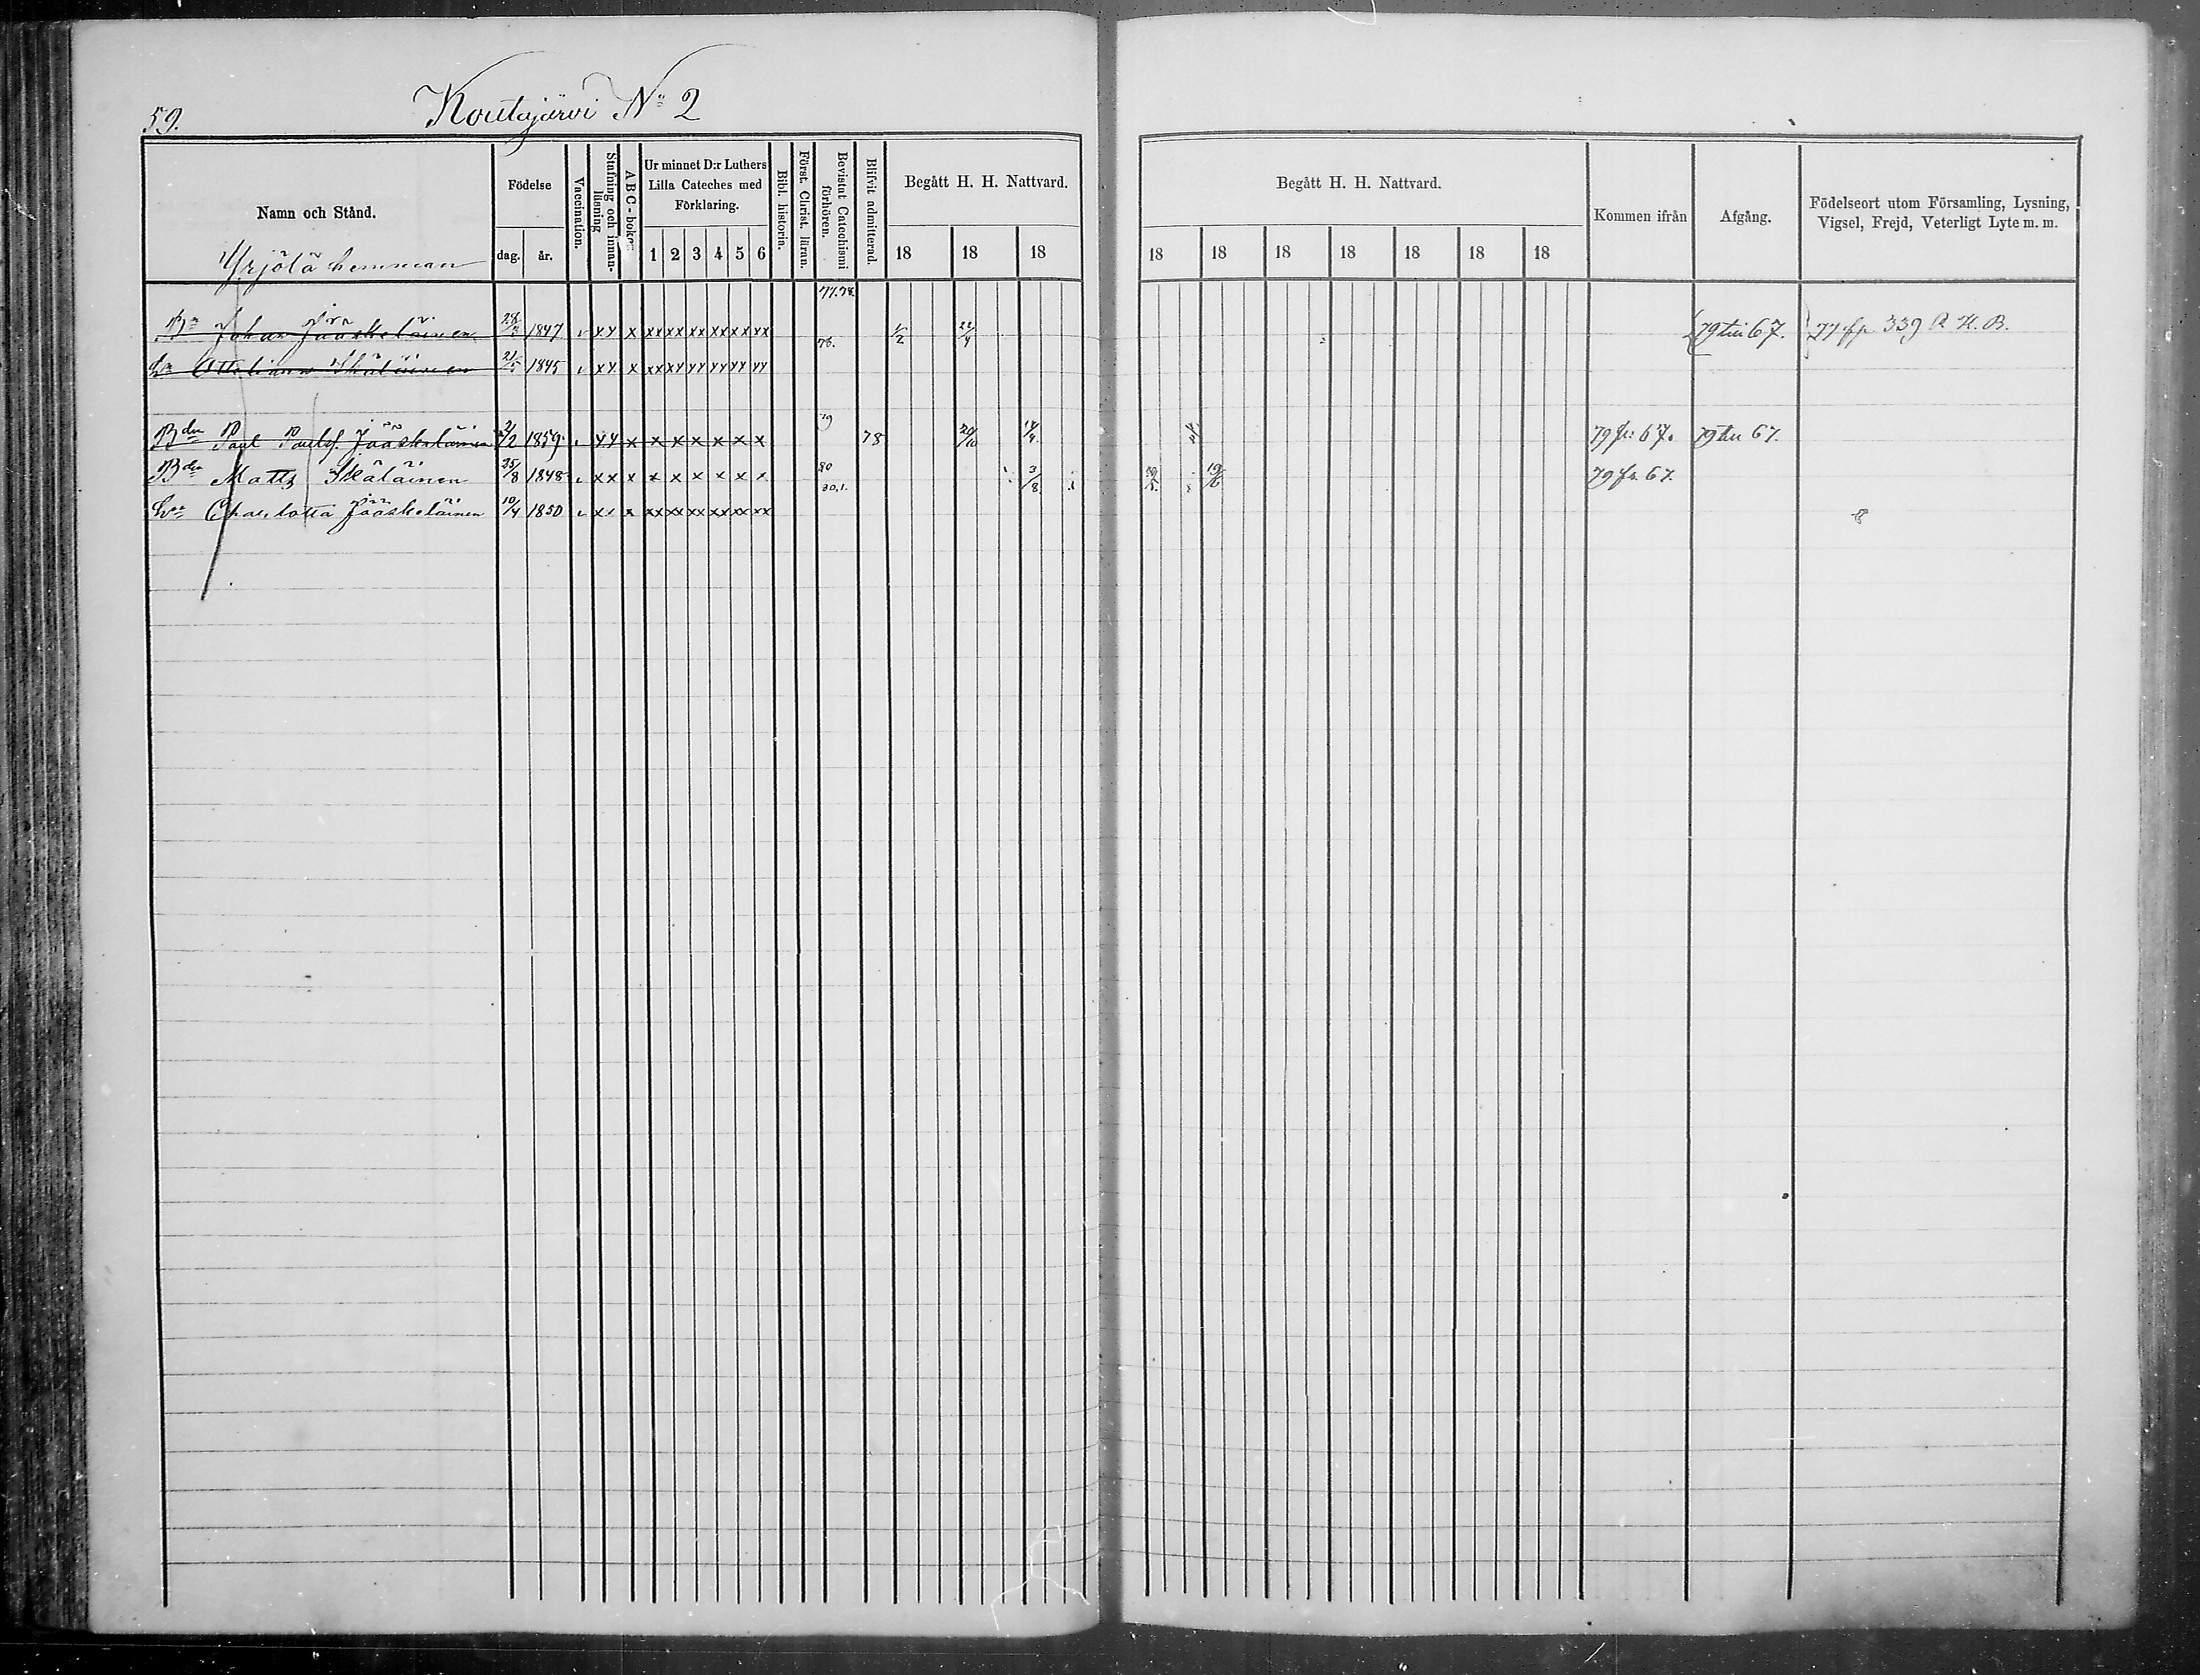 59.
Koutajärvi No 2
Namn och Stånd.
Födelse
dag.
år.
Vaccination.
Stafning och innan-läsning
A B C-boken
Ur minnet D:r Luthers Lilla Cateches med Förklaring.
1 2 3 4 5 6
Bibl. historia.
Först. Christ. läran.
Bevistat Catechismi förhören.
Blifvit admitterad.
Begått H. H. Nattvard.
18 18 18
Begått H. H. Nattvard.
18 18 18 18 18 18 18
Kommen ifrån
Afgång.
Födelseort utom Församling, Lysning, Vigsel, Frejd, Veterligt Lyte m. m.
Yrjölä hemman
77.78.
Bn Johan Jääskeläinen 28/3 1847 xx x xx xx xx xx xx xx 76. 1/2 22/4 79 till 67. 77 fr 339 R. H. B.
21/5 1845 xx x xx xx xx xx xx xx
Bdn Paul Paulss. Jääskeläinen 21/2 1859 xx x x x x x x x 79 78 20/10 14/4 79 fr. 67. 79 till 67.
Bdn Matts Ikäläinen 25/8 1848 xx x x x x x x x 80 3/8 19/6 79 fr. 67.
Hu Charlotta Jääskeläinen 10/4 1850 xx x xx xx xx xx xx xx